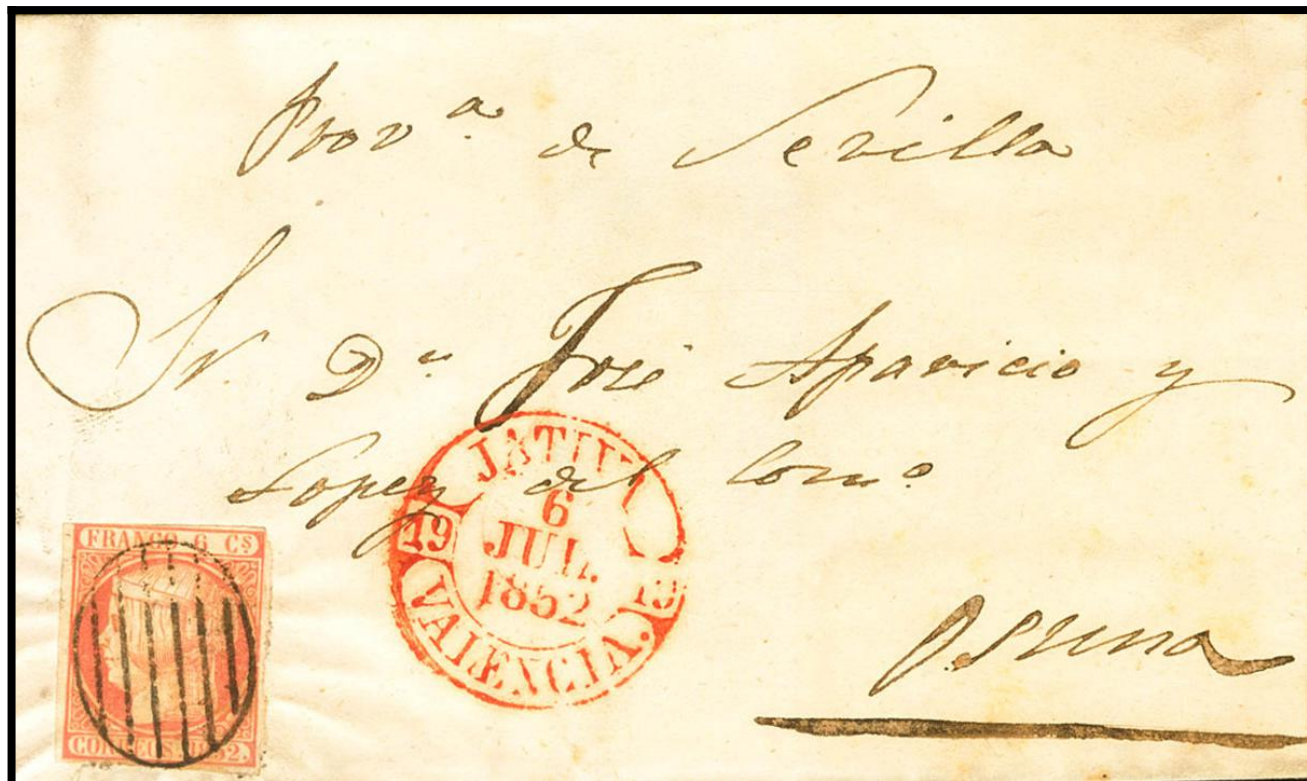 Provª de Sevilla
Sr. Dⁿ José Aparicio y
Lopez del Comº
Osuna
JATIVA
19
6
JUL.
1852
19
VALENCIA.
FRANCO 6 Cs
CORREOS 1852.